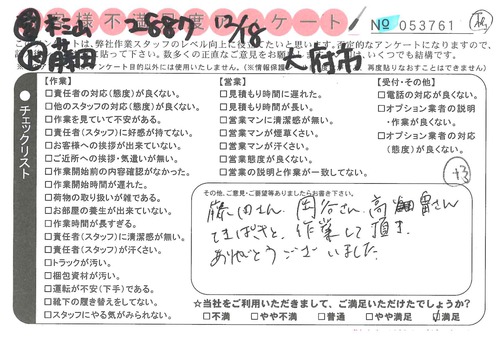 お客様不満度アンケート!
2887 12/18
№ 053761
杉山
藤田
大府市
チェックリスト
【作業】
□責任者の対応(態度)が良くない。
□他のスタッフの対応(態度)が良くない。
□作業を見ていて不安がある。
□責任者(スタッフ)に好感が持てない。
□お客様への挨拶が出来ていない。
□ご近所への挨拶・気遣いが無い。
□作業開始前の内容確認がなかった。
□作業開始時間が遅れた。
□荷物の取り扱いが雑である。
□お部屋の養生が出来ていない。
□作業時間が長すぎる。
□責任者(スタッフ)に清潔感が無い。
□責任者(スタッフ)が汗くさい。
□トラックが汚い。
□梱包資材が汚い。
□運転が不安(下手)である。
□靴下の履き替えをしてない。
□スタッフにやる気がみられない。
【営業】
□見積もり時間に遅れた。
□見積もり時間が長い。
□営業マンに清潔感が無い。
□営業マンが煙草くさい。
□営業マンが汗くさい。
□営業態度が良くない。
□営業の説明と作業が一致してない。
【受付・その他】
□電話の対応が良くない。
□オプション業者の説明
・作業が良くない。
□オプション業者の対応
(態度)が良くない。
+3
その他、ご意見・ご要望等ありましたらお書き下さい。
藤田さん、岡谷さん、高畠さん
てきぱきと、作業して頂き
ありがとうございました。
☆当社をご利用いただきまして、ご満足いただけたでしょうか?
□不満 □やや不満 □普通 □やや満足 ☑満足